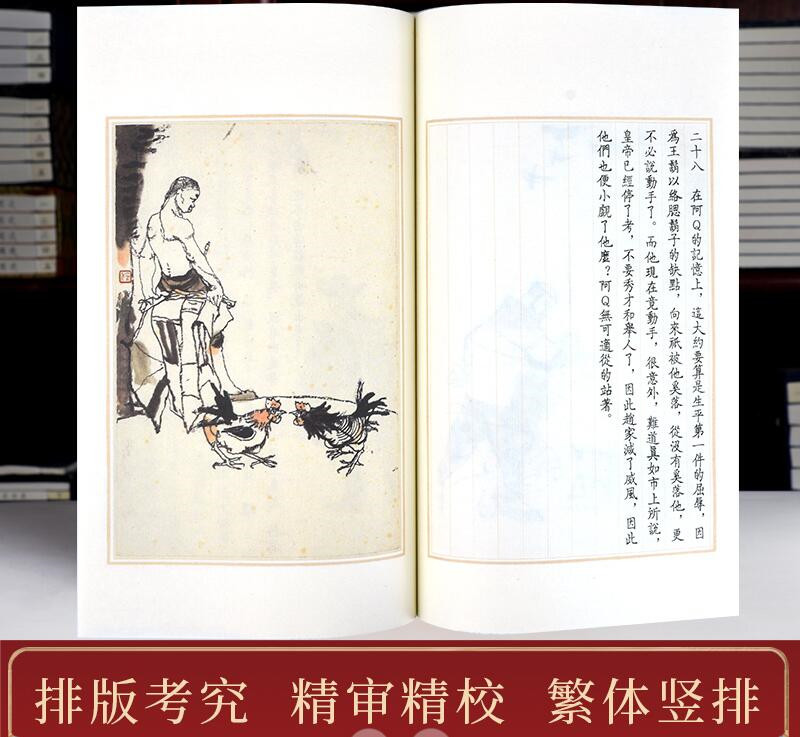 二十八　在阿Q的記憶上，這大約要算是生平第一件的屈辱，因
爲王鬍以絡腮鬍子的缺點，向來祇被他奚落，從沒有奚落他，更
不必說動手了。而他現在竟動手，很意外，難道眞如市上所說，
皇帝已經停了考，不要秀才和舉人了，因此趙家減了威風，因此
他們也便小覷了他麼？阿Q無可適從的站著。
排版考究 精审精校 繁体竖排